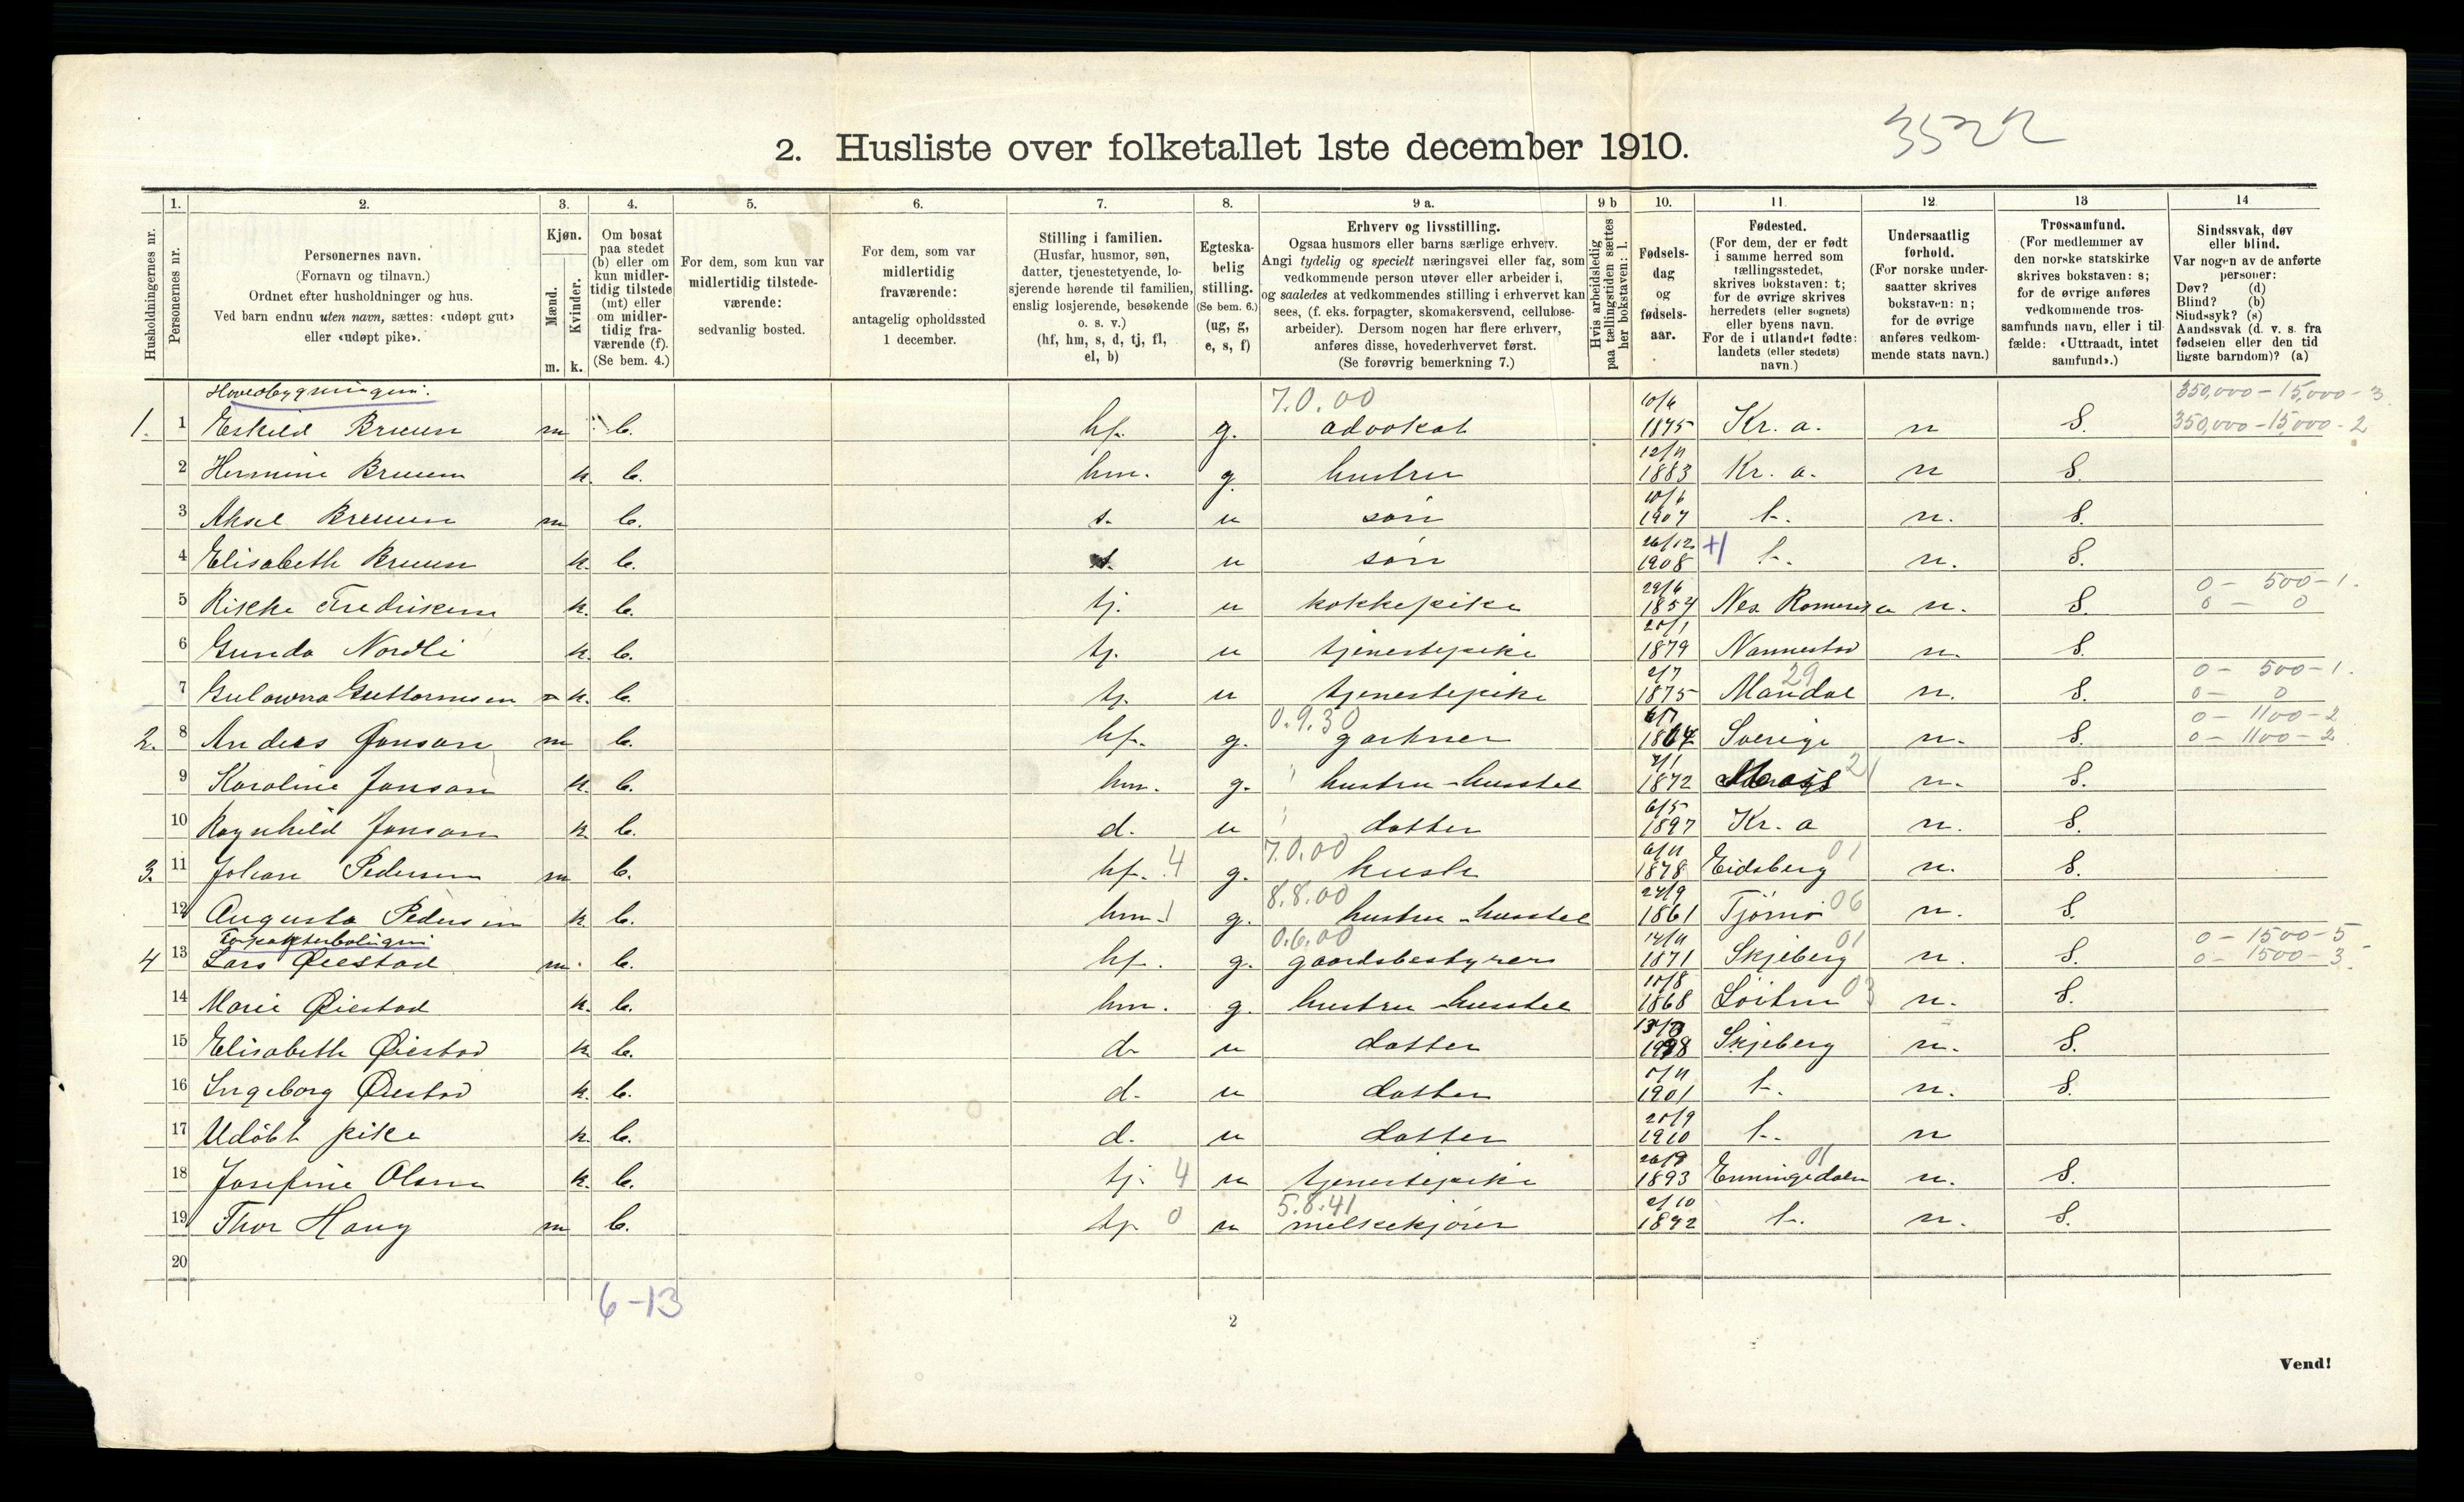 3522
2. Husliste over folketallet 1ste december 1910.
Husholdningernes nr.
1. Personernes nr.
2. Personernes navn.
(Fornavn og tilnavn.)
Ordnet efter husholdninger og hus.
Ved barn endnu uten navn, sættes: «udøpt gut»
eller «udøpt pike».
3. Kjøn.
Mænd. m.
Kvinder. k.
4. Om bosat
paa stedet
(b) eller om
kun midler-
tidig tilstede
(mt) eller
om midler-
tidig fra-
værende (f).
(Se bem. 4.)
5. For dem, som kun var
midlertidig tilstede-
værende:
sedvanlig bosted.
6. For dem, som var
midlertidig
fraværende:
antagelig opholdssted
1 december.
7. Stilling i familien.
(Husfar, husmor, søn,
datter, tjenestetyende, lo-
sjerende hørende til familien,
enslig losjerende, besøkende
o. s. v.)
(hf, hm, s, d, tj, fl,
el, b)
8. Egteska-
belig
stilling.
(Se bem. 6.)
(ug, g,
e, s, f)
9 a. Erhverv og livsstilling.
Ogsaa husmors eller barns særlige erhverv.
Angi tydelig og specielt næringsvei eller fag, som
vedkommende person utøver eller arbeider i,
og saaledes at vedkommendes stilling i erhvervet kan
sees, (f. eks. forpagter, skomakersvend, cellulose-
arbeider). Dersom nogen har flere erhverv,
anføres disse, hovederhvervet først.
(Se forøvrig bemerkning 7.)
9 b Hvis arbeidsledig
paa tællingstiden sættes
her bokstaven: l.
10. Fødsels-
dag
og
fødsels-
aar.
11. Fødested.
(For dem, der er født
i samme herred som
tællingsstedet,
skrives bokstaven: t;
for de øvrige skrives
herredets (eller sognets)
eller byens navn.
For de i utlandet fødte:
landets (eller stedets)
navn.)
12. Undersaatlig
forhold.
(For norske under-
saatter skrives
bokstaven: n;
for de øvrige
anføres vedkom-
mende stats navn.)
13 Trossamfund.
(For medlemmer av
den norske statskirke
skrives bokstaven: s;
for de øvrige anføres
vedkommende tros-
samfunds navn, eller i til-
fælde: «Uttraadt, intet
samfund».)
14 Sindssvak, døv
eller blind.
Var nogen av de anførte
personer:
Døv? (d)
Blind? (b)
Sindssyk? (s)
Aandssvak (d. v. s. fra
fødselen eller den tid
ligste barndom)? (a)
Hovedbygningen. 7.0.00 10/6 350,000-15,000-3
1. 1 Eskild Bruun m b. hf. g. advokat 1875 Kr. a. n S. 350,000-15,000-2
12/11
2 Hermine Bruun k. b. hm. g. hustru 1883 Kr. a. n S.
10/6
3 Aksel Bruun m b. s. u søn 1907 t. n. S.
26/12
4 Elisabeth Bruun k. b. u søn 1908 t. n. S.
29/6 0 - 500-1.
5 Rikke Fredriksen k. b. tj. u kokkepike 1854 Nes Romerike n. S. 0 - 0
6 Gunda Nordli k. b. tj. u tjenestepike 1879 Nannestad n. S.
2/7 29 0 - 500-1.
7 Gulowna Guttormsen k. b. tj. u tjenestepike 1875 Mandal n. S. 0 - 0
0.9.30 0 - 1100-2
2. 8 Anders Jonson m b. hf. g. gartner 1864 Sverige n. S. 0 - 1100-2
21
9 Karoline Jonson k. b. hm. g. hustru - husstel 1872 n. S.
6/5
10 Ragnhild Jonson k. b. d. u datter 1897 Kr. a n. S.
7.0.00 6/11 01
3. 11 Johan Pedersen m b. hf. 4 g. kusk 1878 Eidsberg n. S.
8.8.00 24/9 06
12 Augusta Pedersen k b. hm. 1 g. hustru - husstel 1861 Tjømø n. S.
Forpakterboligen 0.6.00 14/11 01 0 - 1500-5
4 13 Lars Øiestad m. b. hf. g. gaardsbestyrer 1871 Skjeberg n. S. 0 - 1500-3
10/8 03
14 Marie Øiestad k. b. hm. g. hustru - husstel 1868 Løiten n. S.
15 Elisabeth Øiestad k b. d. u datter Skjeberg n. S.
5/11
16 Ingeborg Øiestad k. b. d. u datter 1901 t. n. S.
20/9
17 Udøbt pike k. b. d. u datter 1910 t. n
01
18 Josefine Olsen k. b. tj. 4 u tjenestepike 1893 Enningedalen n. S.
5.8.41 2/10
19 Thor Haug m b. tj. 0 u melkekjører 1892 t. n. S.
20
6-13
2
Vend!